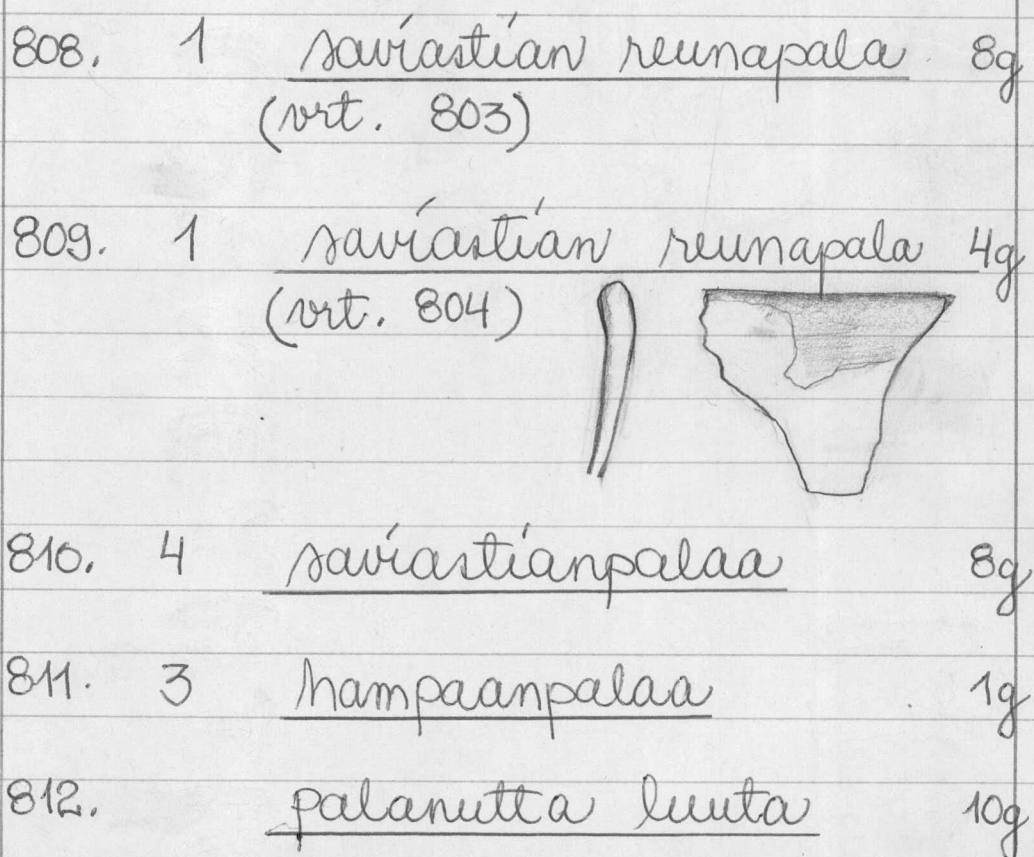 808. 1 saviastian reunapala 8g
(vrt. 803)
809. 1 saviastian reunapala 4g
(vrt. 804)
810. 4 saviastianpalaa 8g
811. 3 hampaanpalaa 1g
812. palanutta luuta 10g